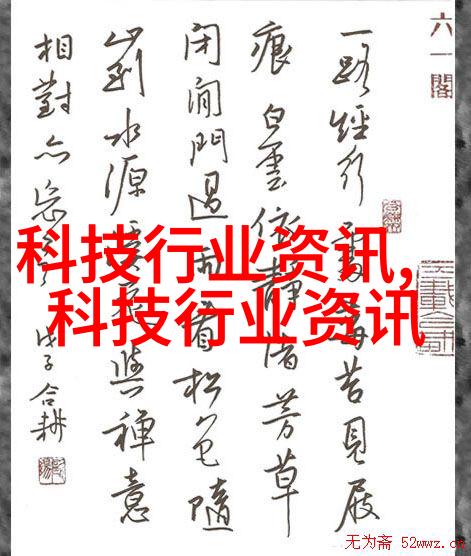 六一閣
一路經行處莓苔見屐
痕白雲依靜渚芳草
閉閑門過雨看松色隨
山到水源花與禪意
相對亦忘
戊子合耕
科技行业资讯,
科技行业资讯
无为斋 52wwz.c